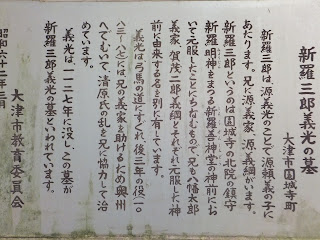 新羅三郎義光の墓
大津市園城寺町
新羅三郎は、源義光のことで源頼義の子に
あたります。兄に源義家、源義綱がいます。
新羅三郎というのは園城寺の北院の鎮守
新羅明神をまつる新羅善神堂の神前にお
いて元服したことにちなむもので兄も八幡太郎
義家、賀茂二郎義綱とそれぞれ元服した神
前に由来する名を別に有しています。
義光は弓馬の道にすぐれ後三年の役(一〇
八三〜八七)には兄の義家を助けるため奥州
へでむいて、清原氏の乱を兄に協力して治
めています。
義光は、一一二七年に没し、この墓が
新羅三郎義光の墓といわれています。
昭和六十二年三月
大津市教育委員会